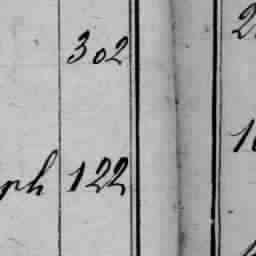 302
ph 122